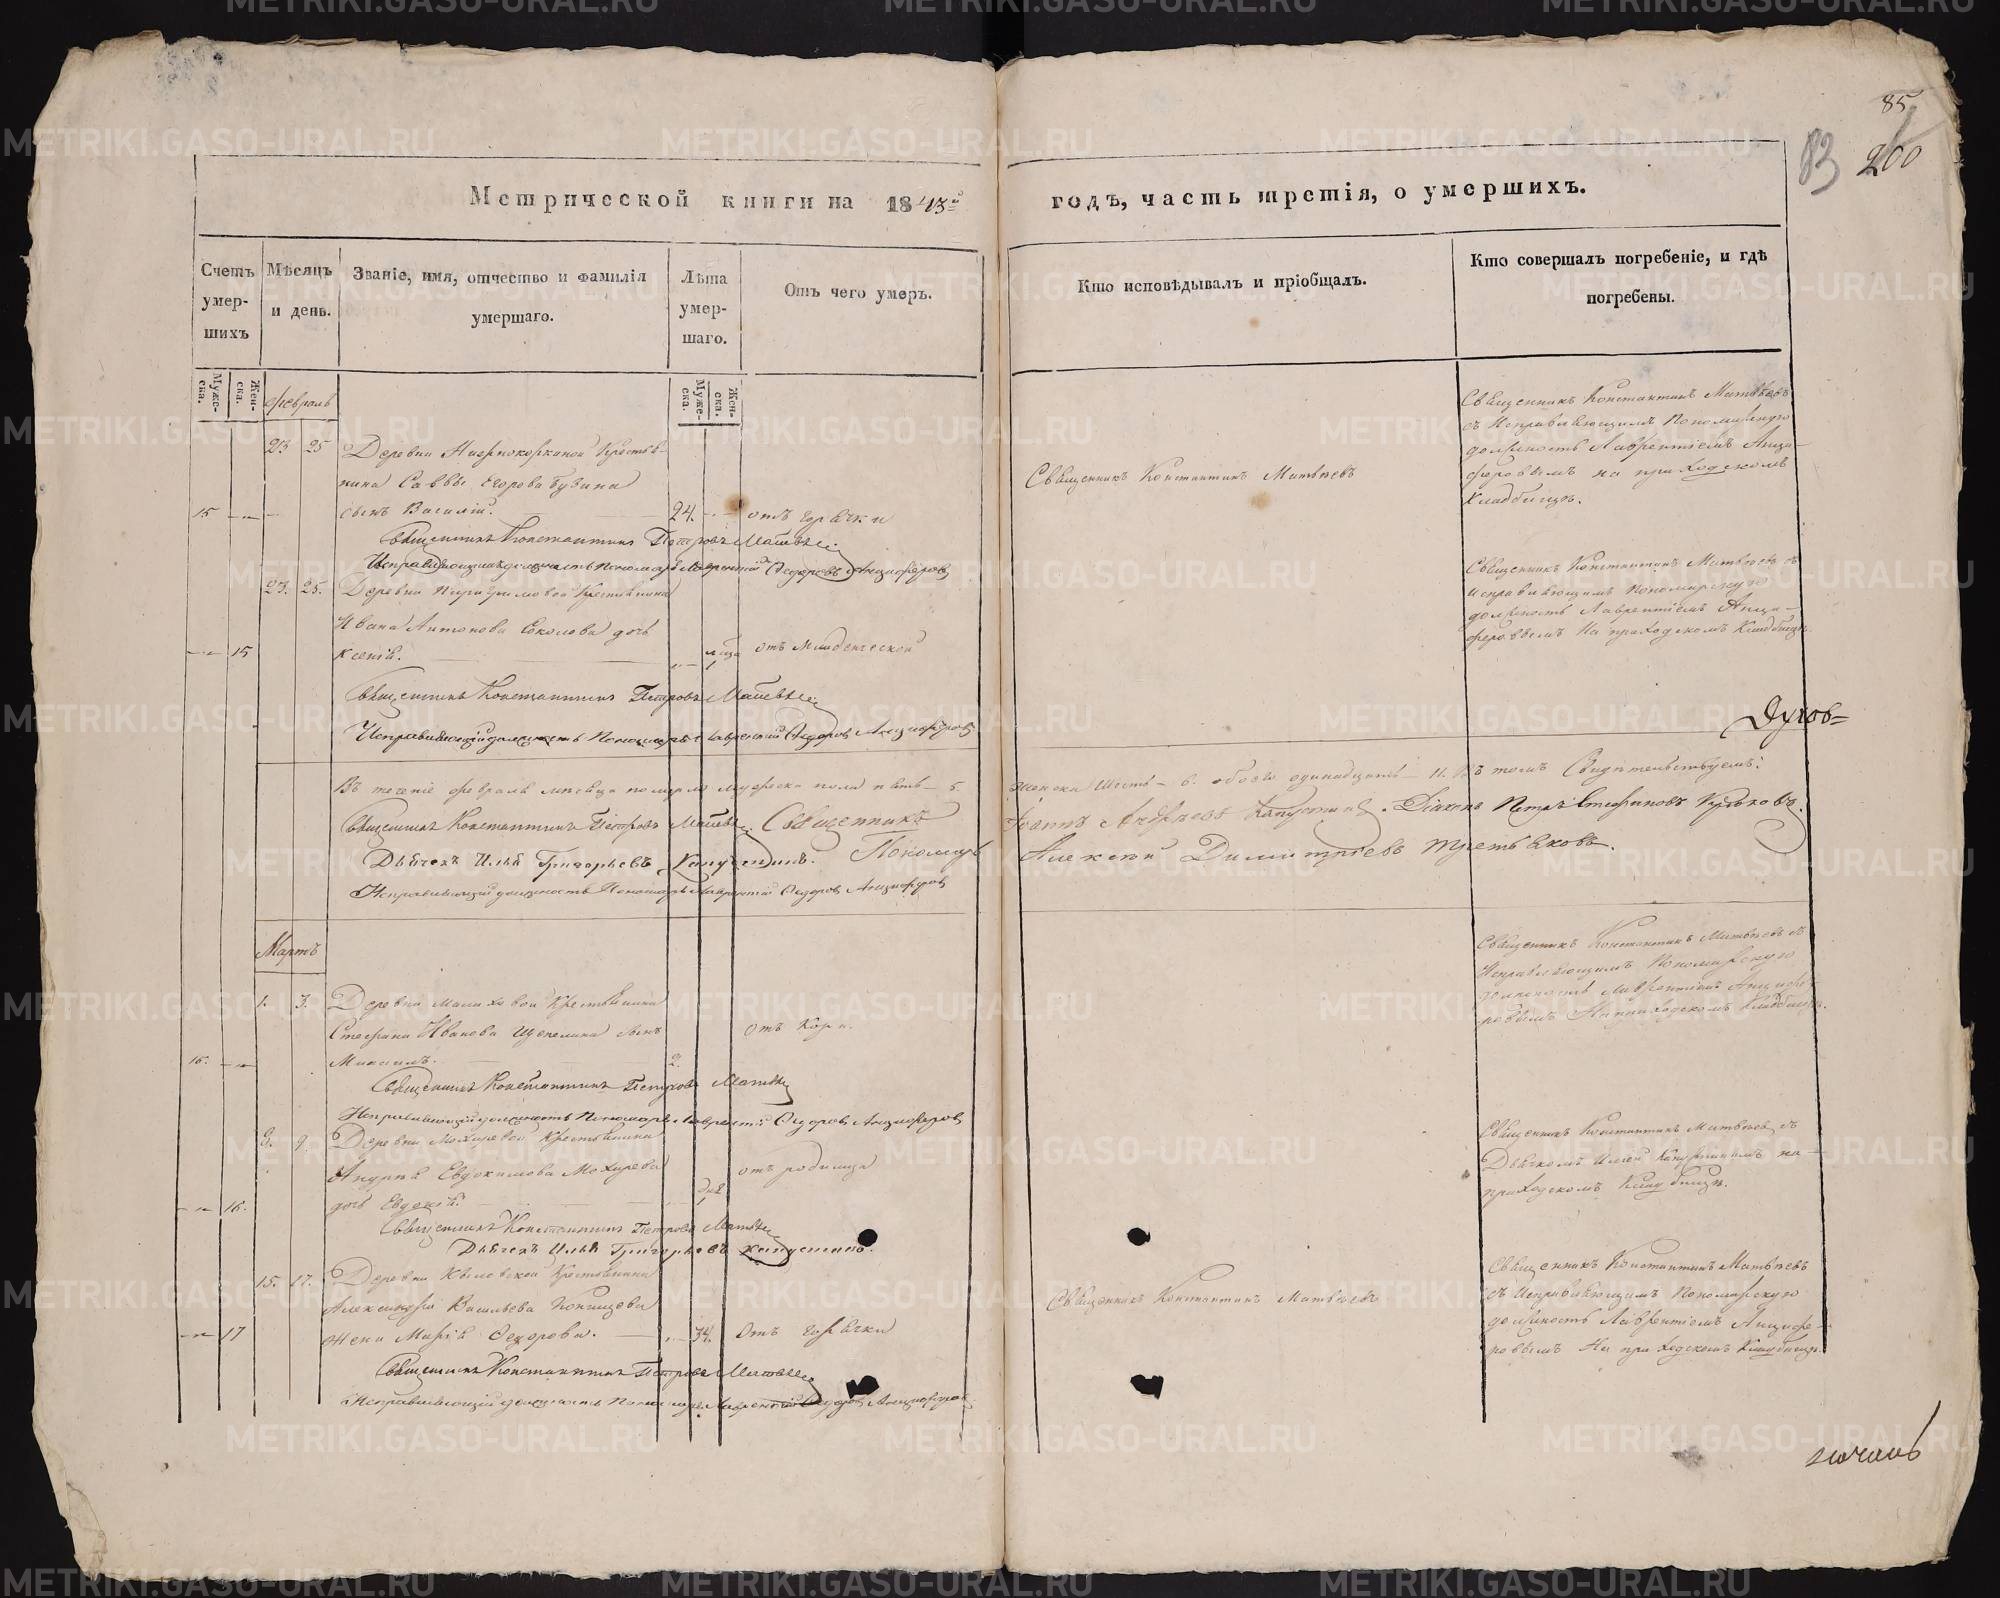 85
83
200
Метрической книги на 1843й
годъ, часть третія, о умершихъ.
Счетъ умер-
шихъ
Мѣсяцъ
и день.
Званіе, имя, отчество и фамилія
умершаго.
Лѣта
умер-
шаго.
Отъ чего умеръ.
Кто исповѣдывалъ и пріобщалъ.
Кто совершалъ погребеніе, и гдѣ
погребены.
Муже-
ска.
Жен-
ска.
Муже-
ска.
Жен-
ска.
Февраль
23 25 Деревни Крестья-
нина Саввы Егорова Бузина
15 сынъ Василій. 24. отъ горячки
Священникъ Константинъ Матвѣевъ
Священникъ Константинъ Матвѣевъ
съ Исправляющимъ Пономарскую
должность Лаврентіемъ Анци-
феровымъ на приходскомъ
Кладбищѣ.
Священникъ Константинъ Петровъ Матвѣевъ
Исправляющій должность Пономаря Лаврентій Ѳедоровъ Анциферовъ
23. 25. Деревни Крестьянина
Ивана Антонова Соколова дочь
15 Ксенія. 1 отъ младенческой
Священникъ Константинъ Матвѣевъ съ
исправляющимъ Пономарскую
должность Лаврентіемъ Анци-
феровымъ на приходскомъ Кладбищѣ.
Священникъ Константинъ Петровъ Матвѣевъ
Исправляющій должность Пономаря Лаврентій Ѳедоровъ Анциферовъ
Духов=
Въ теченіе февраля мѣсяца померло мужеска пола пять - 5.
женска шесть - 6. обоего одинадцать - 11. Въ томъ Свидѣтельствуемъ:
Священникъ Константинъ Петровъ Матвѣевъ Священникъ
Іоаннъ Андреевъ Капустинъ. Діаконъ Петръ Стефановъ
Дьячекъ Илья Григорьевъ Капустинъ. Пономарь
Алексѣй Димитріевъ Третьяковъ.
Исправляющій должность Пономаря Лаврентій Ѳедоровъ Анциферовъ
Мартъ
1. 3. Деревни Малаховой Крестьянина
Стефана Иванова Щепелина сынъ
16. Максимъ. 2. отъ Кори.
Священникъ Константинъ Матвѣевъ съ
Исправляющимъ Пономарскую
должность Лаврентіемъ Анцифе-
ровымъ На приходскомъ Кладбищѣ.
Священникъ Константинъ Петровъ Матвѣевъ
Исправляющій должность Пономаря Лаврентій Ѳедоровъ Анциферовъ
8. 9. Деревни Мохиревой Крестьянина
Евдокимова Мохирева
16. дочь Евдокія. отъ родимца
Священникъ Константинъ Матвѣевъ съ
Дьячкомъ Ильей Капустинымъ на
приходскомъ Кладбищѣ.
Священникъ Константинъ Петровъ Матвѣевъ
Дьячекъ Илья Григорьевъ Капустинъ.
15. 17. Деревни Крестьянина
Александра Васильева
17 жена Марія Ѳедорова. 34. отъ горячки
Священникъ Константинъ Матвѣевъ
Священникъ Константинъ Матвѣевъ
съ Исправляющимъ Пономарскую
должность Лаврентіемъ Анцифе-
ровымъ На приходскомъ Кладбищѣ.
Священникъ Константинъ Петровъ Матвѣевъ
Исправляющій должность Пономаря Лаврентій Ѳедоровъ Анциферовъ
METRIKI.GASO-URAL.RU